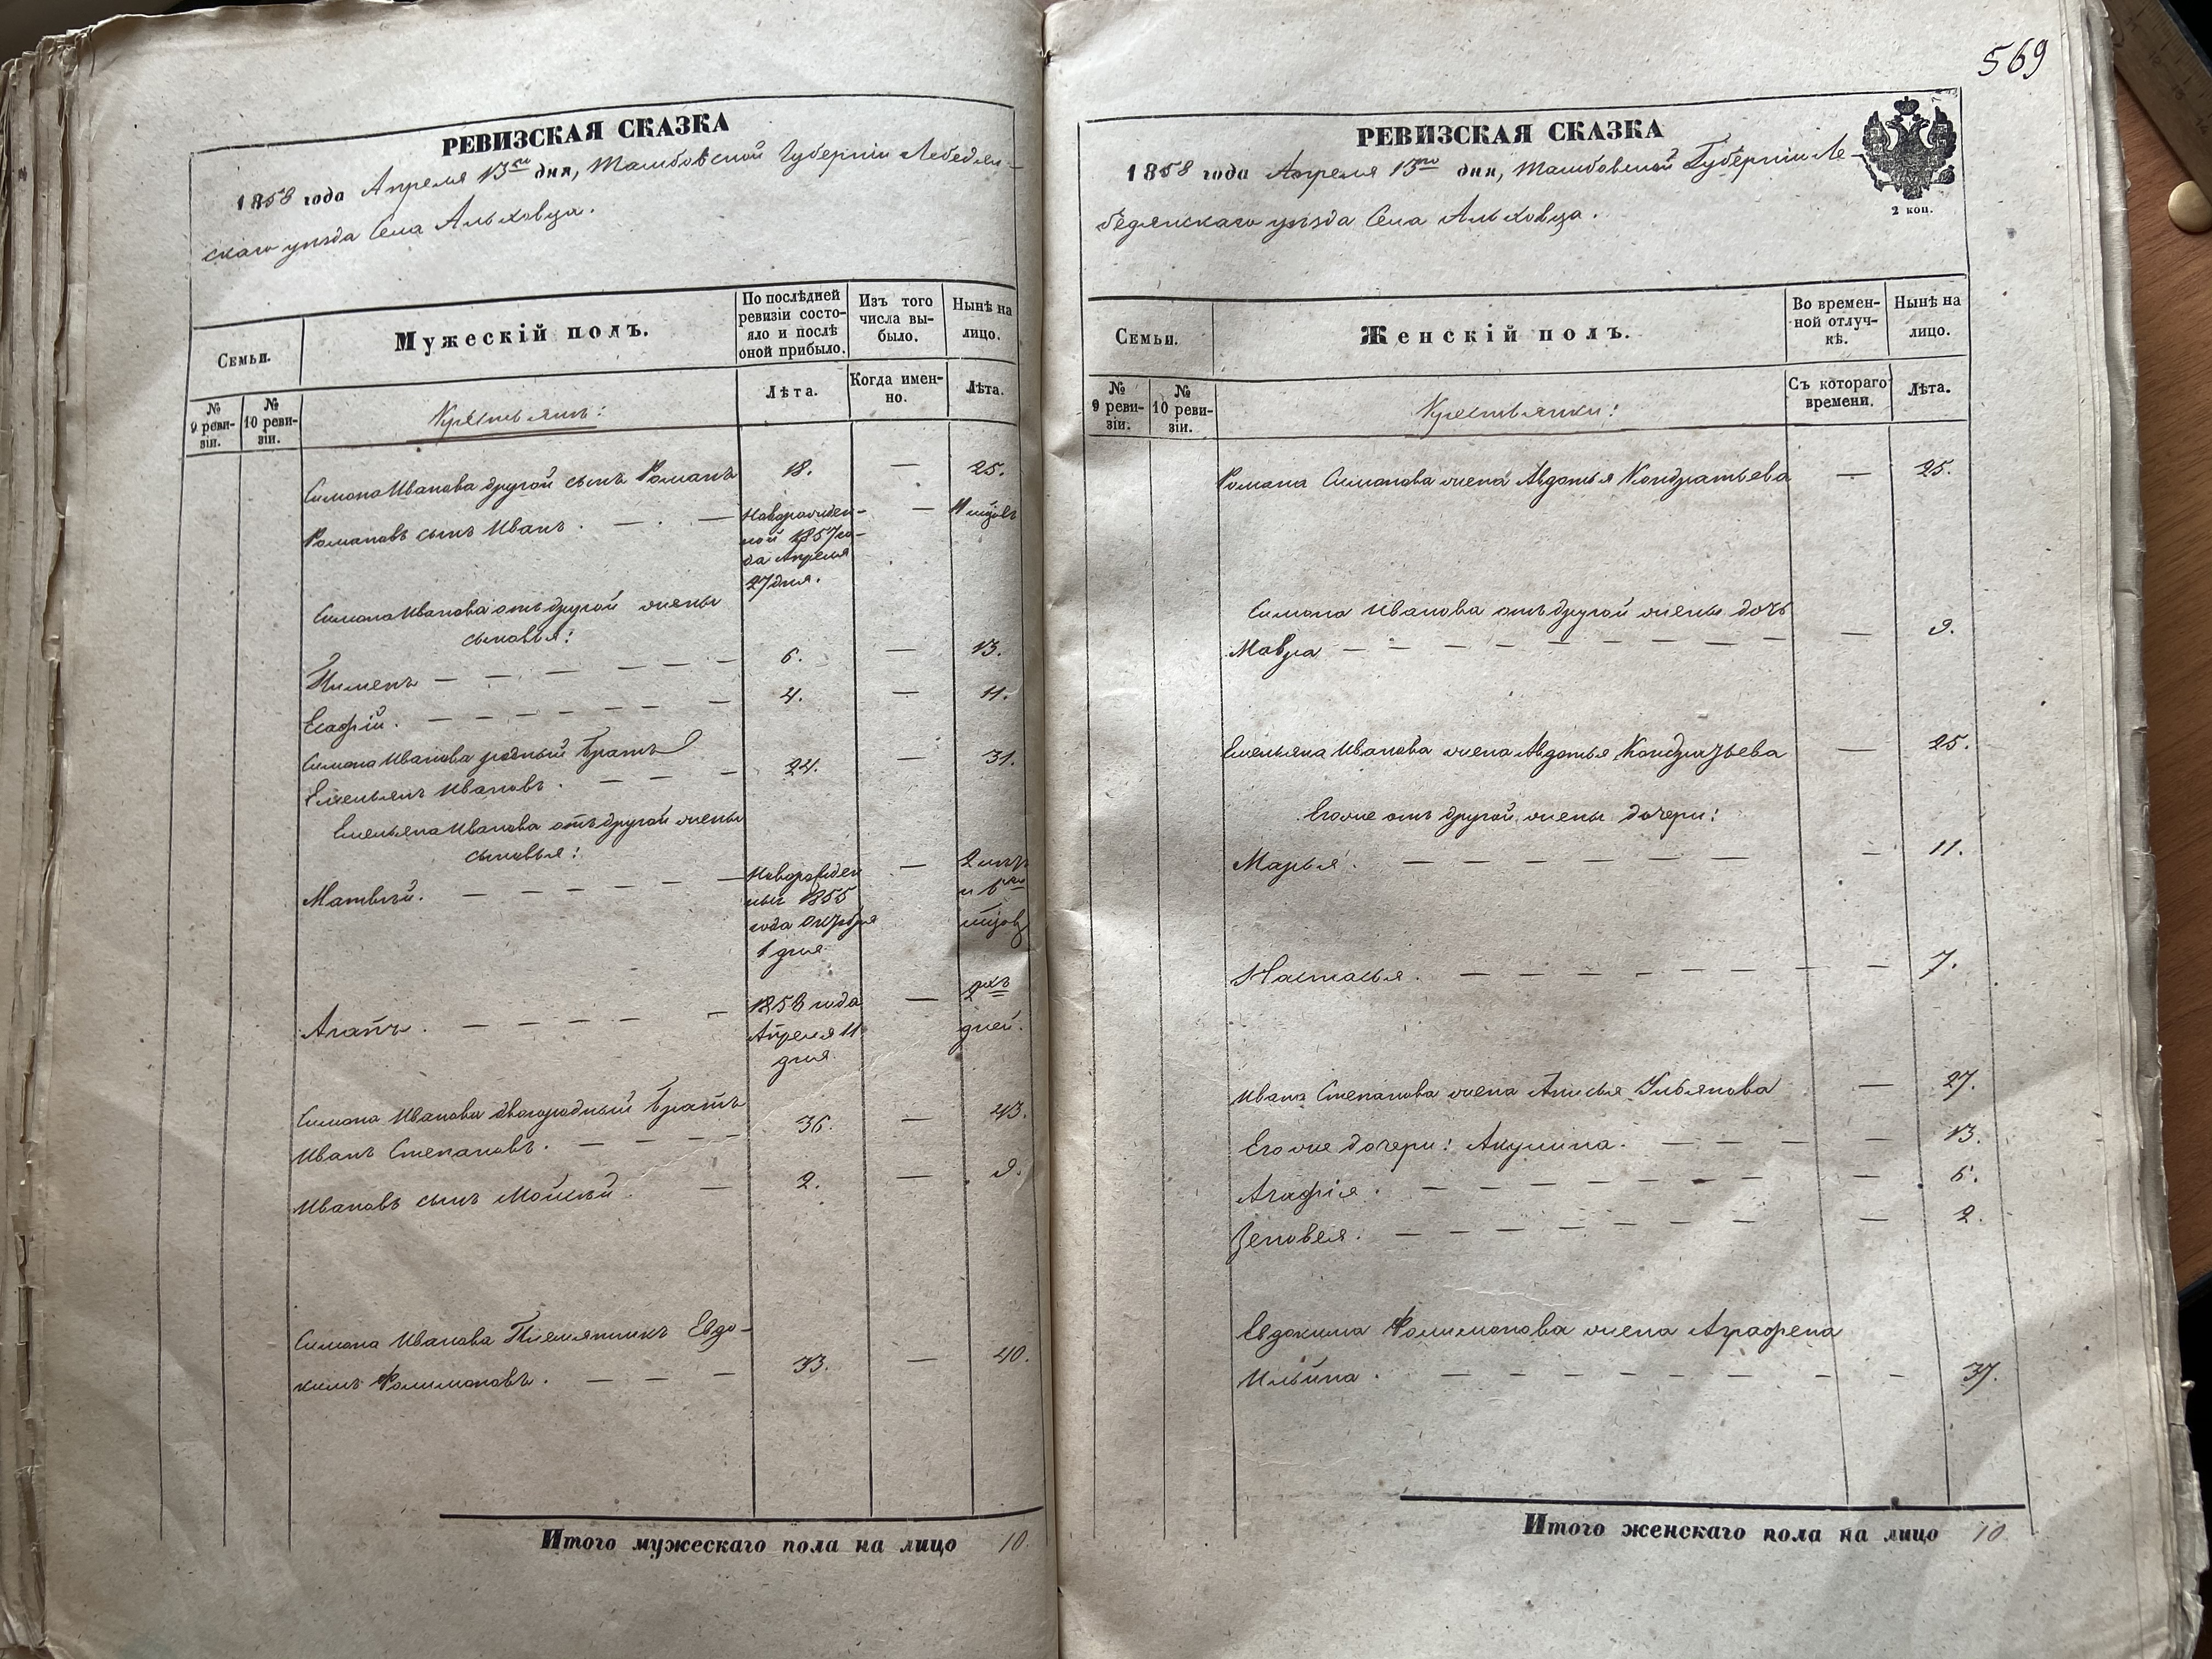 РЕВИЗСКАЯ СКАЗКА
1858 года Апреля 13го дня, Тамбовской Губерніи Лебедян-
скаго уѣзда Села Альховца.
Семьи.
Мужескій полъ.
По послѣдней
ревизіи состо-
яло и послѣ
оной прибыло.
Изъ того
числа вы-
было.
Нынѣ на
лицо.
№
9 реви-
зіи.
№
10 реви-
зіи.
Крестьянъ:
Лѣта.
Когда имен-
но.
Лѣта.
Симона Иванова другой сынъ Романъ 18. — 25.
Романовъ сынъ Иванъ. — . — Новорожден- —
ной 1857 го-
да Апреля
27 дня.
Симона Иванова отъ другой жены
сыновья:
Пименъ — — — — — — 6. — 13.
Есафій. — — — — — — 4. — 11.
Симона Иванова родный братъ
Емельянъ Ивановъ. — — — 24. — 31.
Емельяна Иванова отъ другой жены
сыновья:
Матвѣй. — — — — — Новорожден — 2 лѣтъ
ный 1855 и 6ти
года Октября мцов
1 дня.
Агапъ. — — — — — 1858 года — 2хъ
Апреля 11 дней.
дня
Симона Иванова двоюродный братъ
Иванъ Степановъ. — — — — 36. — 43.
Ивановъ сынъ Мойсѣй. — 2. — 9.
Симона Иванова Племянникъ Евдо-
кимъ Филимоновъ. — — — 33. — 40.
Итого мужескаго пола на лицо 10.
569
РЕВИЗСКАЯ СКАЗКА
1858 года Апреля 13го дня, Тамбовской Губерніи Ле-
бедянскаго уѣзда Села Альховца.
2 коп.
Семьи.
Женскій полъ.
Во времен-
ной отлуч-
кѣ.
Нынѣ на
лицо.
№
9 реви-
зіи.
№
10 реви-
зіи.
Крестьянки:
Съ котораго
времени.
Лѣта.
Романа Симонова жена Авдотья Кондратьева — 25.
Симона Иванова отъ другой жены дочь
Мавра — — — — — — — — — 9.
Емельяна Иванова жена Авдотья Кондратьева — 25.
Егоже отъ другой жены дочери:
Марья. — — — — — — — — 11.
Настасья. — — — — — — — — 7.
Ивана Степанова жена Анисья Ульянова — 27.
Егоже дочери: Акулина. — — — — — 13.
Агафія. — — — — — — — 6.
Зеновея. — — — — — — — 2.
Евдокима Филимонова жена Аграфена
Ильина. — — — — — — — — — 37.
Итого женскаго пола на лицо 10